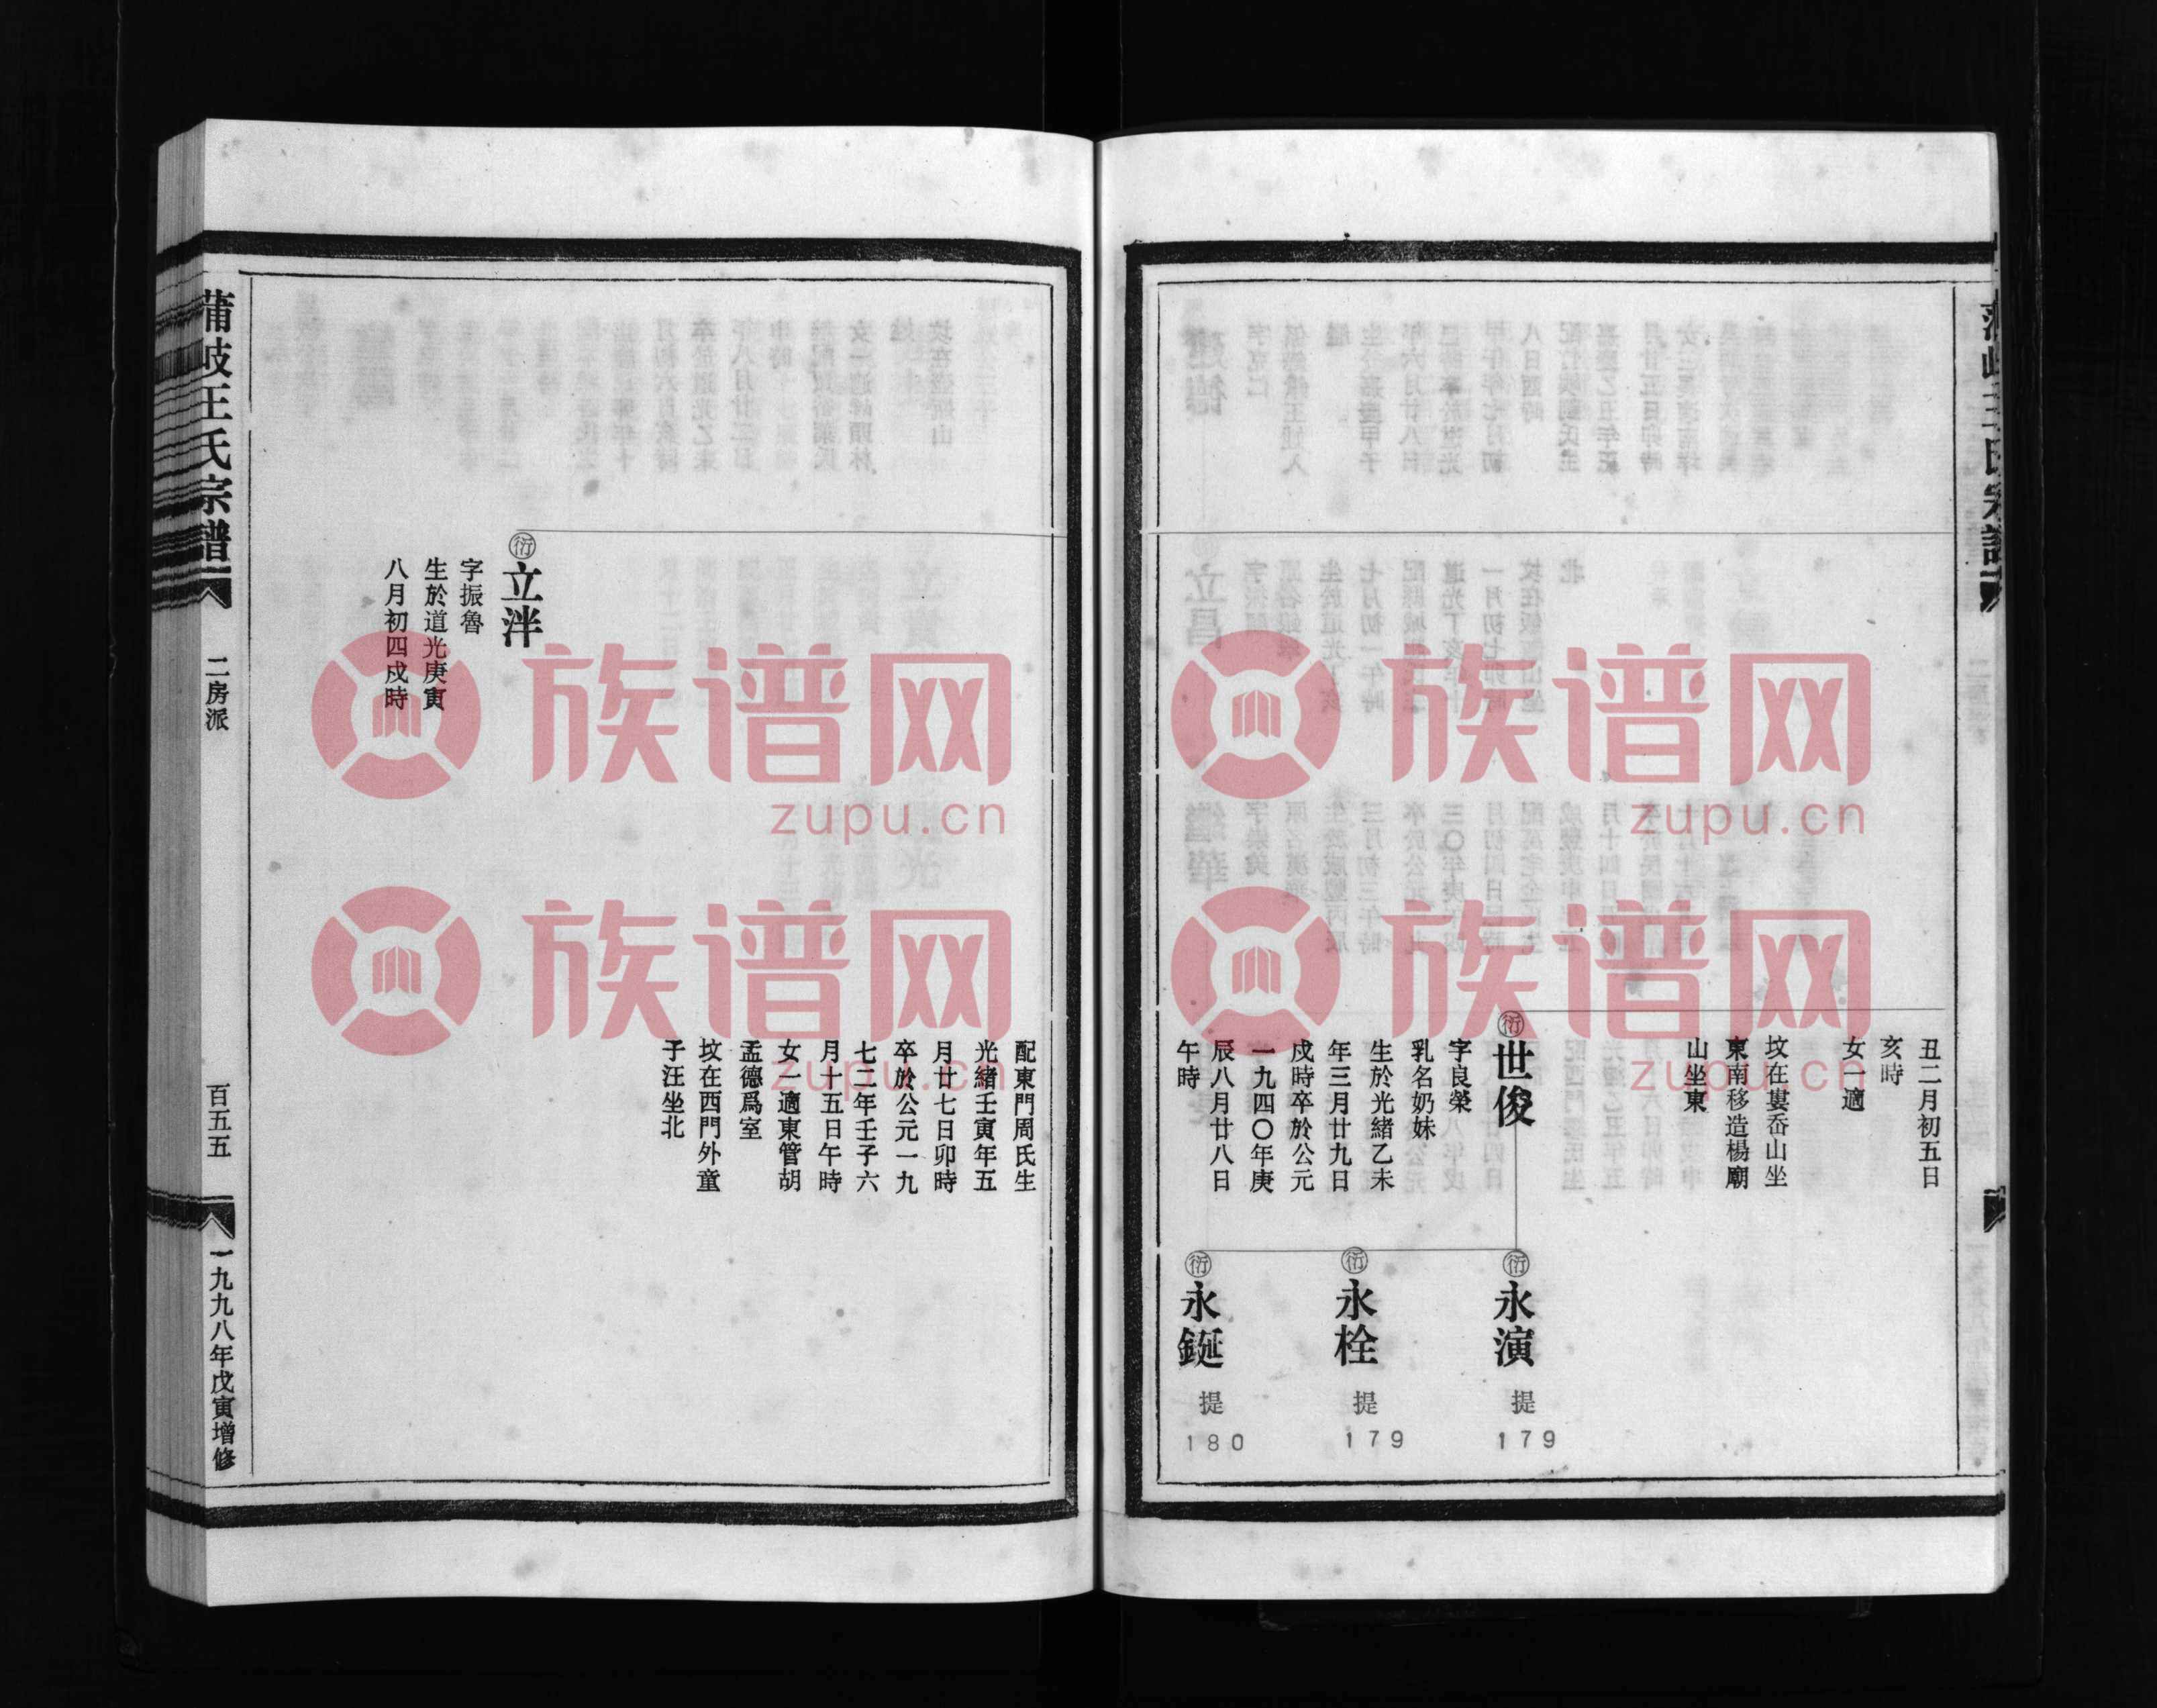 丑二月初五日
亥時
女一適
坟在婁岙山坐
東南移造楊廟
山坐東
衍
世俊
字良榮
乳名奶妹
生於光緒乙未
年三月廿九日
戌時卒於公元
一九四〇年庚
辰八月廿八日
午時
衍
永演
提
179
衍
永栓
提
179
衍
永鋋
提
180
配東門周氏生
光緒壬寅年五
月廿七日卯時
卒於公元一九
七二年壬子六
月十五日午時
女一適東管胡
孟德爲室
坟在西門外童
子汪坐北
衍
立泮
字振魯
生於道光庚寅
八月初四戌時
蒲岐王氏宗譜
二房派
百五五
一九九八年戊寅增修
族谱网
zupu.cn
族谱网
zupu.cn
族谱网
zupu.cn
族谱网
zupu.cn